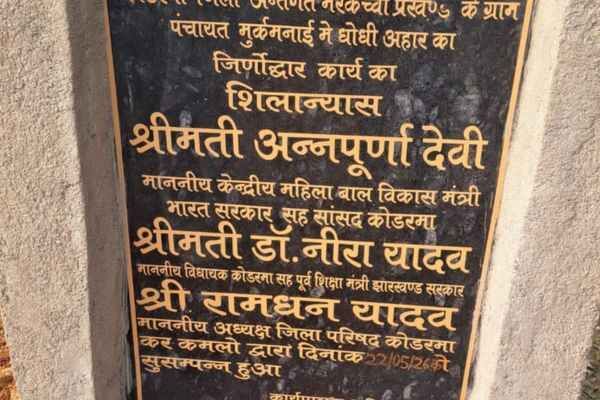 जिला अन्तर्गत मरकच्चो प्रखण्ड के ग्राम
पंचायत मुर्कमनाई मे धोधी अहार का
जिर्णोद्धार कार्य का
शिलान्यास
श्रीमती अन्नपूर्णा देवी
माननीय केन्द्रीय महिला बाल विकास मंत्री
भारत सरकार सह सांसद कोडरमा
श्रीमती डॉ. नीरा यादव
माननीय विधायक कोडरमा सह पूर्व शिक्षा मंत्री झारखण्ड सरकार
श्री रामधन यादव
माननीय अध्यक्ष जिला परिषद कोडरमा
कर कमलो द्वारा दिनांक 22/05/26 को
सुसम्पन्न हुआ